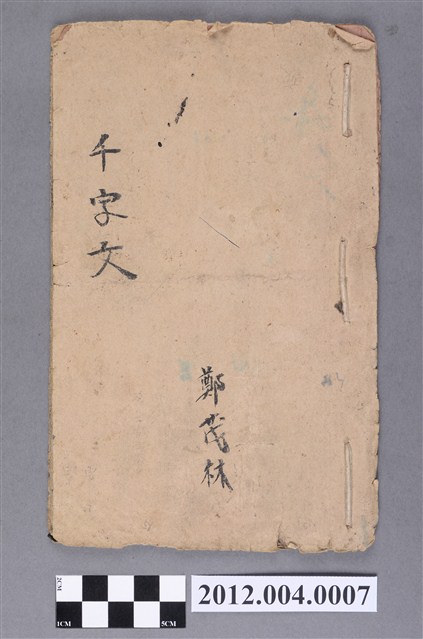 千字文
鄭茂林
2CM
1CM
5CM
2012.004.0007